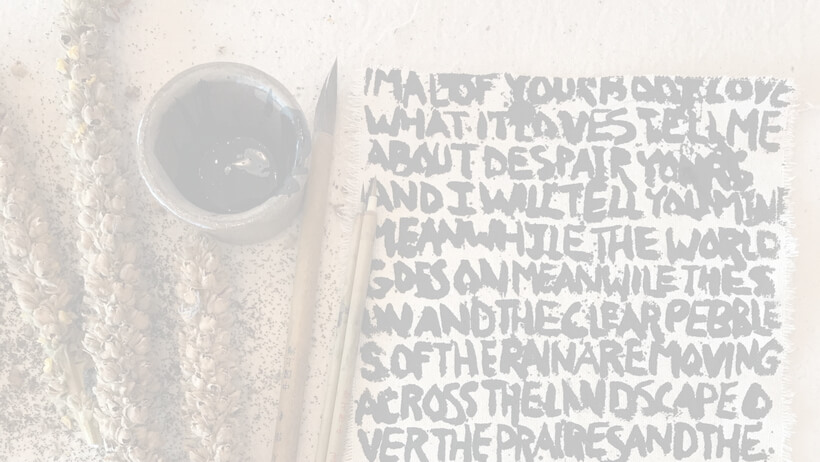 IMAL OF YOUR BODY LOVE
WHAT IT LOVES TELL ME
ABOUT DESPAIR YOURS
AND I WILL TELL YOU MINE
MEANWHILE THE WORLD
GOES ON MEANWILE THE S
UN AND THE CLEAR PEBBLE
S OF THE RAIN ARE MOVING
ACROSS THE LANDSCAPE O
VER THE PRAIRES AND THE.